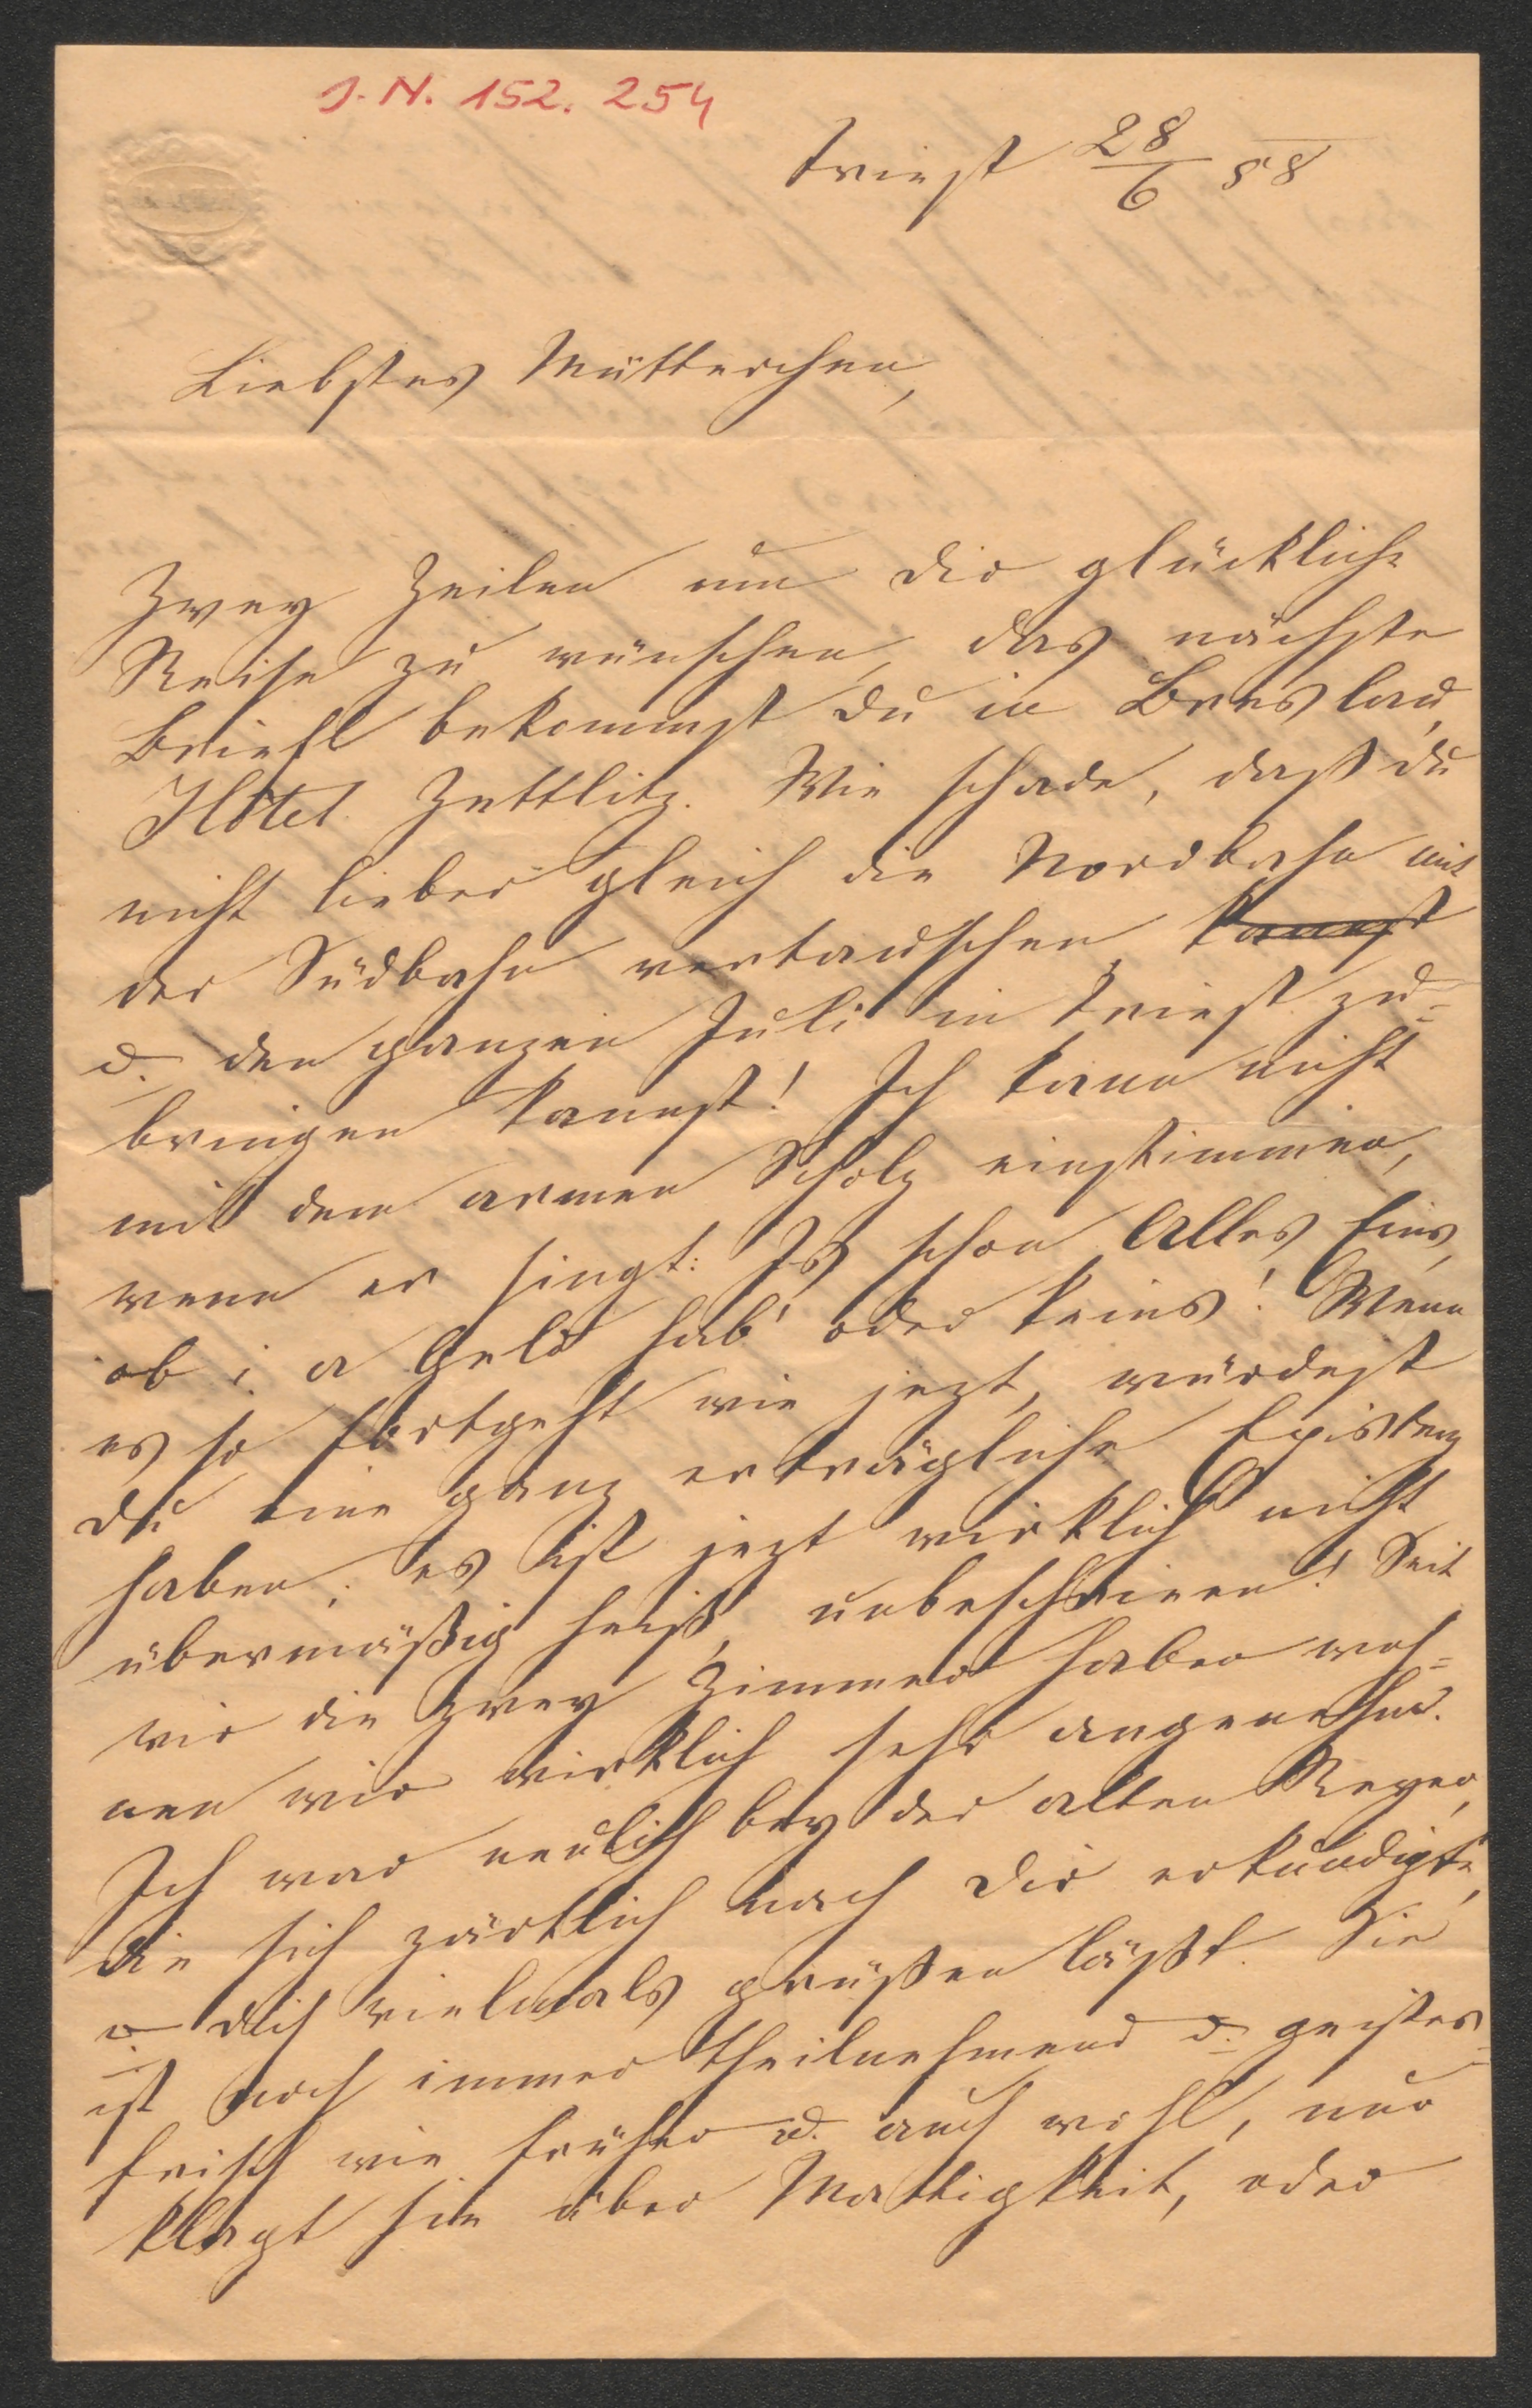 I. N. 152.254
Triest 28/6 58
Liebstes Mütterchen,
Zwey Zeilen um dir glückliche
Reise zu wünschen, das nächste
Briefl bekommst du in Breslau,
Hôtel Zettlitz. Wie schade, daß du
nicht lieber gleich die Nordbahn mit
der Südbahn vertauschen kannst
u. den ganzen Juli in Triest zu=
bringen kannst! Ich kann nicht
mit dem armen Scholz einstimmen,
wenn er singt: Is schon Alles Eins,
ob i a Geld hab' oder keins! Wenn
es so fortgeht wie jezt, würdest
du eine ganz erträgliche Existenz
haben; es ist jezt wirklich nicht
übermäßig heiß, unbeschrieen! Seit
wir die zwey Zimmer haben woh=
nen wir wirklich sehr angenehm.
Ich war neulich bey der alten Reyer,
die sich zärtlich nach dir erkundigte,
u. dich vielmals grüßen läßt. Sie
ist noch immer theilnehmend u. geistes=
frisch wie früher u. auch wohl, nur
klagt sie über Mattigkeit, oder